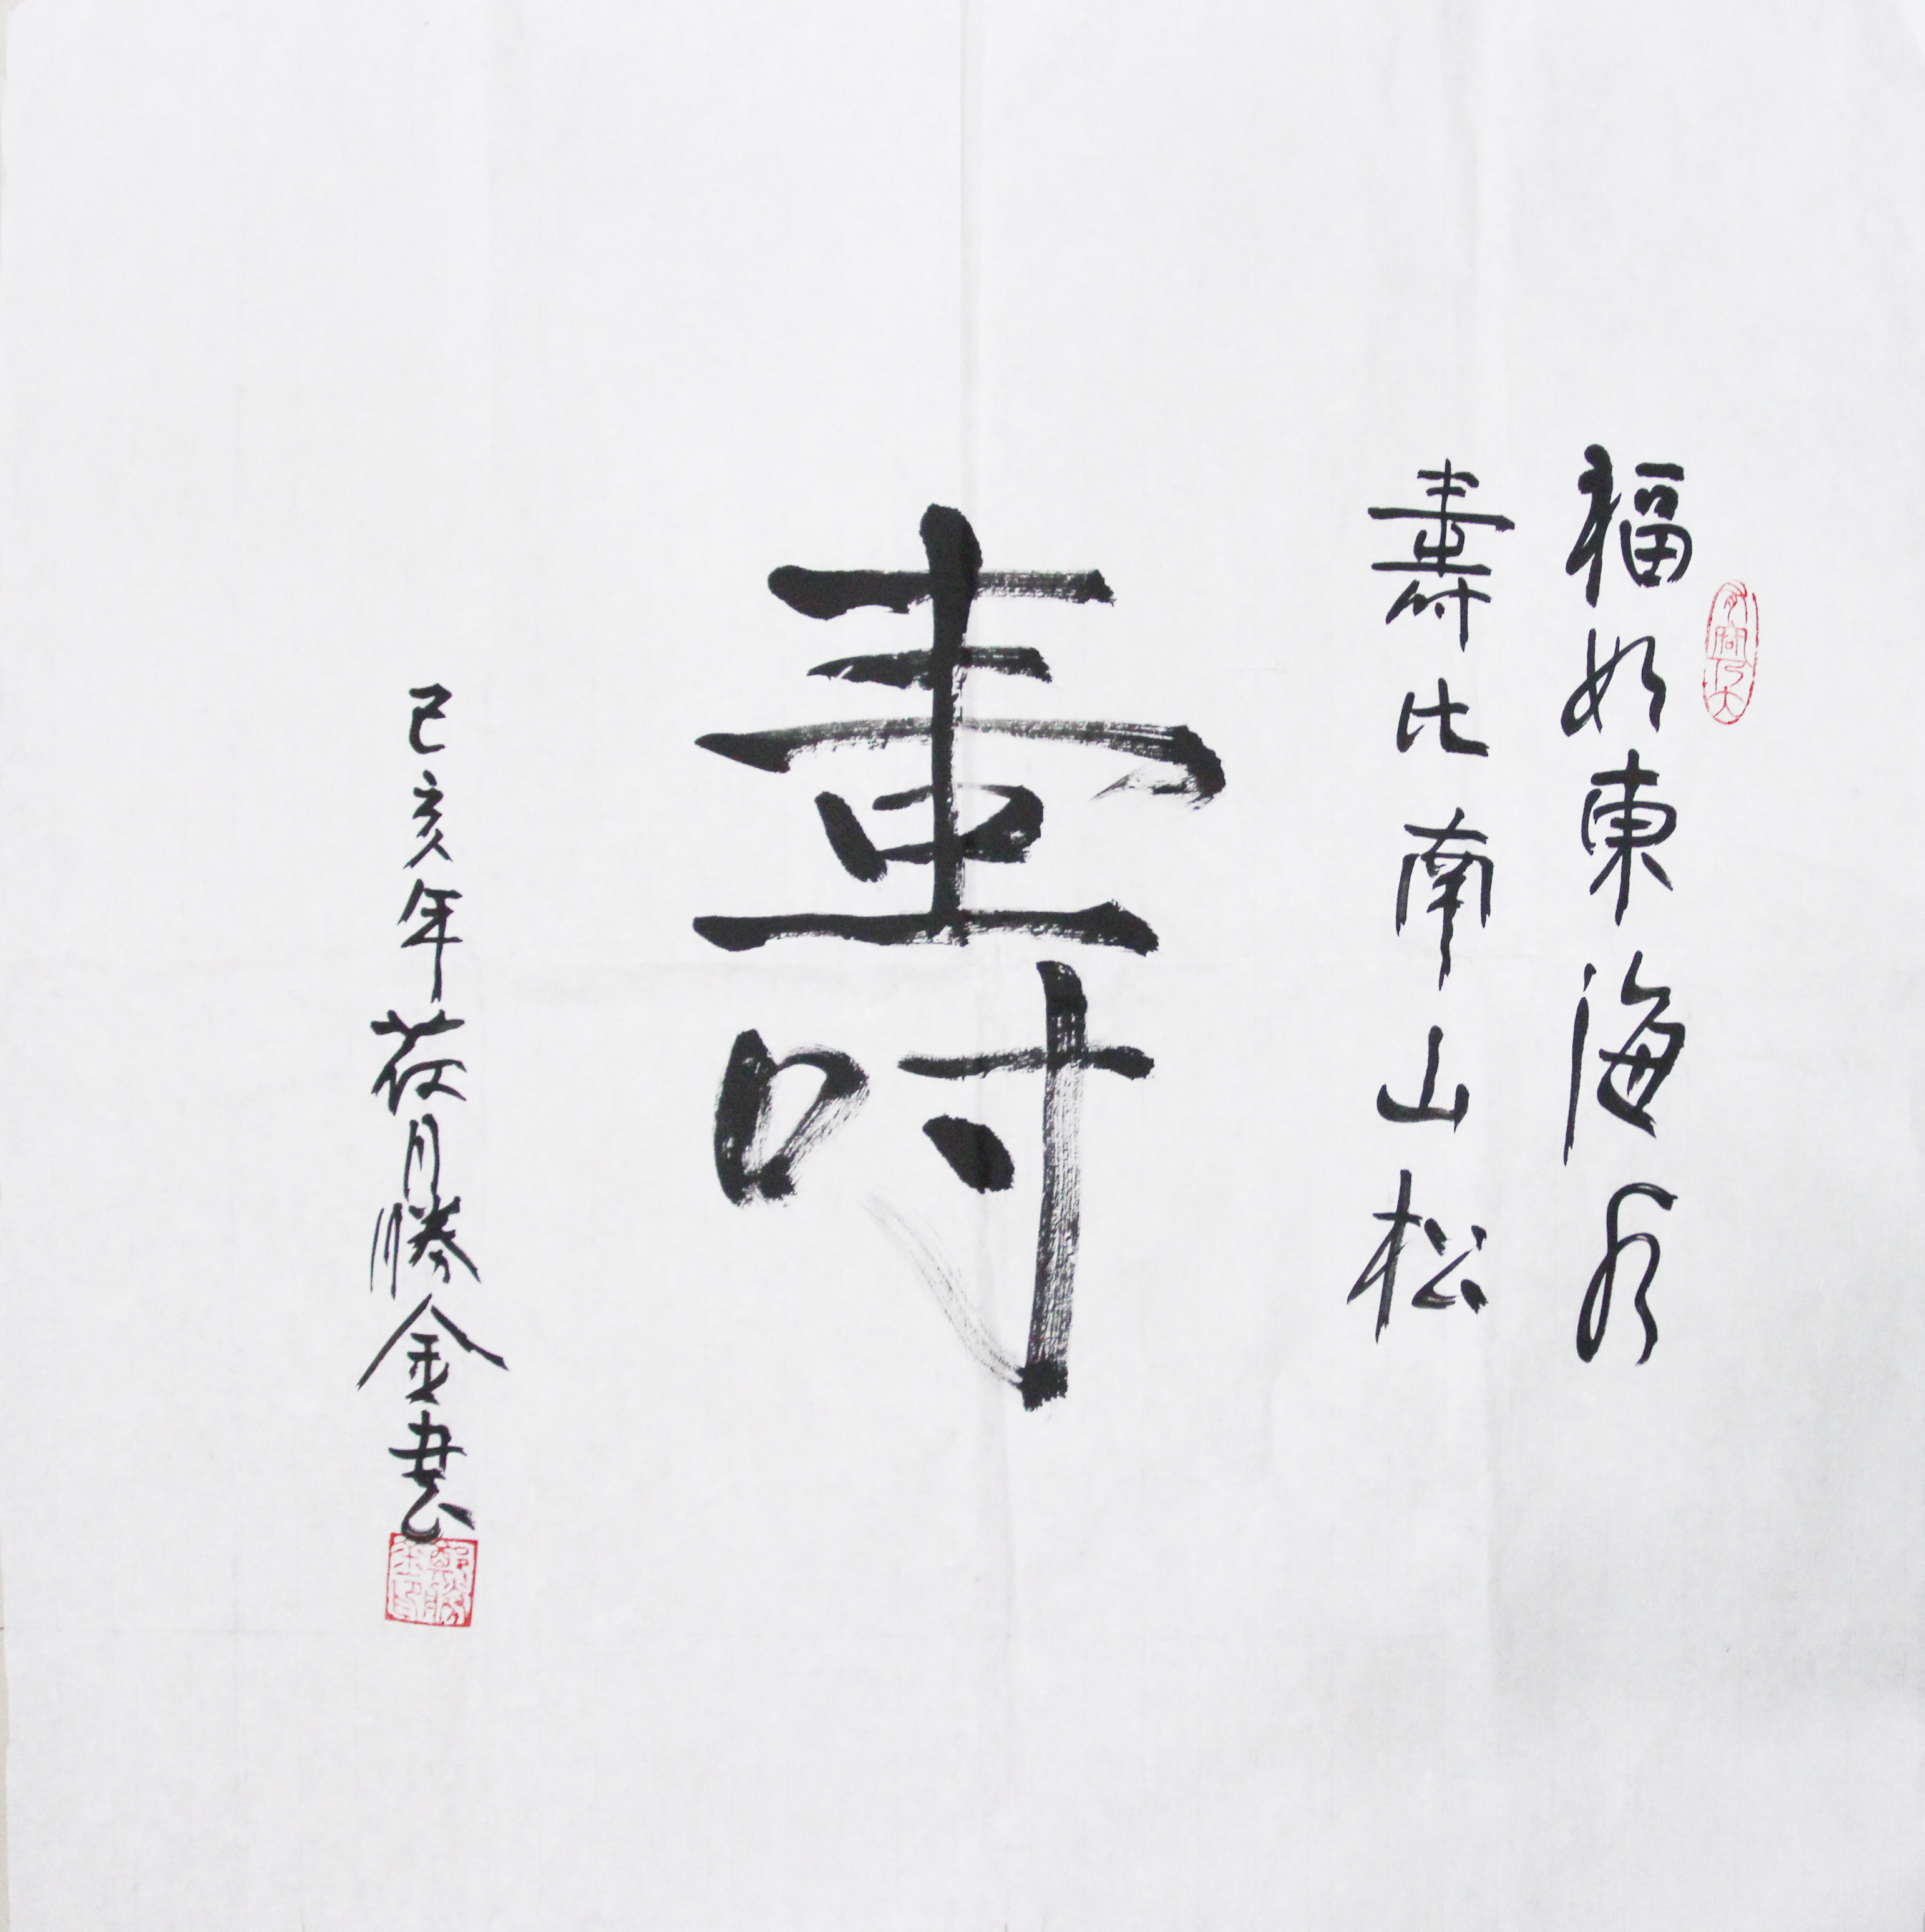 福如東海水
壽比南山松
壽
己亥年荷月勝金書